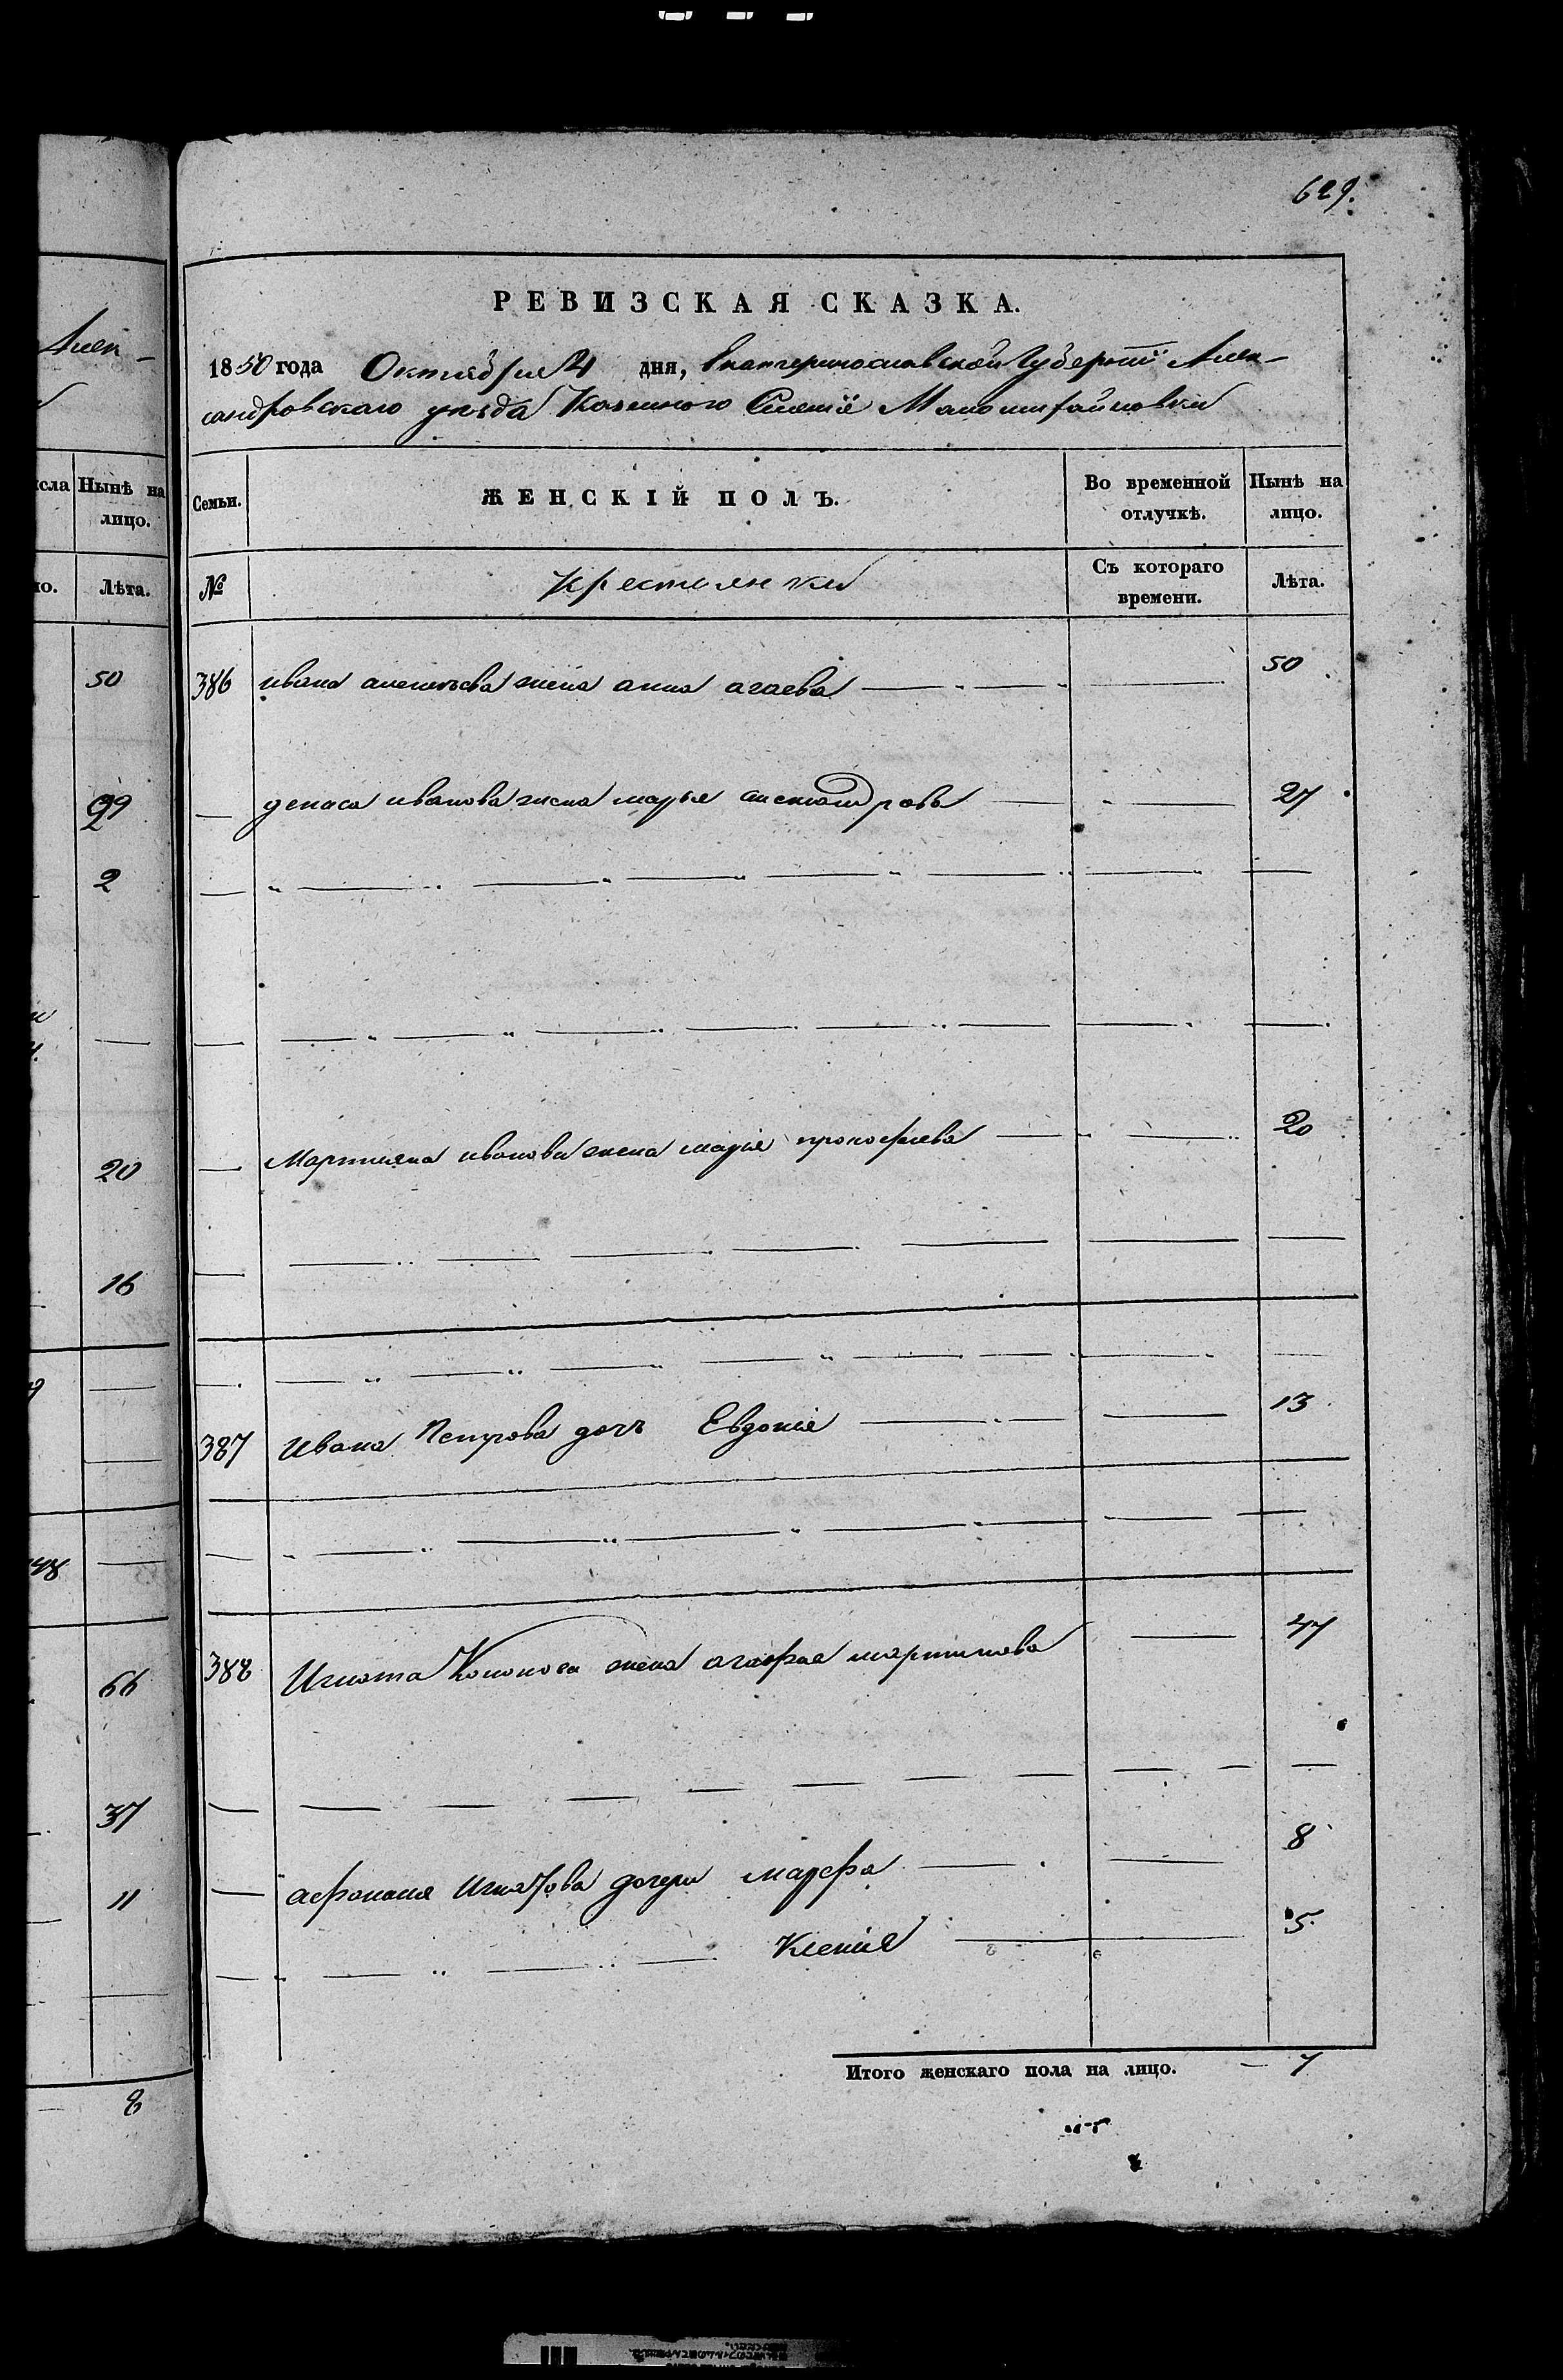 629.
РЕВИЗСКАЯ СКАЗКА.
1850 года Октября 4 дня, Екатеринославской Губерніи Алек-
сандровскаго уезда Казенного Селенія
Семьи. ЖЕНСКІЙ ПОЛЪ. Во временной отлучкѣ. Нынѣ на лицо.
№ Крестьянки Съ котораго времени. Лѣта.
386 ивана жена анна 50
— дениса иванова жена марья александрова 27
— Мартияна иванова жена марія прокофиева 20
387 Ивана Петрова дочь Евдокія 13
388 Игната Кононова жена агафия мартинова 47
— афонасия Игнатова дочери марфа 8
Ксенія 5
Итого женскаго пола на лицо. — 7
Алек-
Нынѣ на лицо.
Лѣта.
50
29
2
20
16
48
66
37
11
8